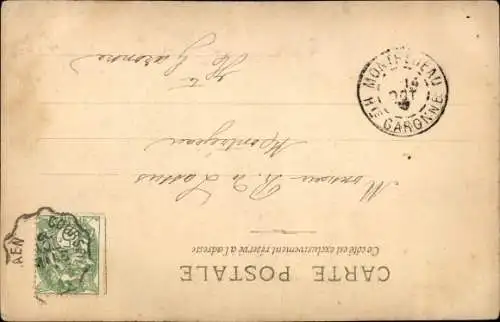 CARTE POSTALE
Ce côté est exclusivement réservé à l'adresse
Monsieur R. de Lassus
Montréjeau
Hte Garonne
MONTREJEAU
HTE GARONNE